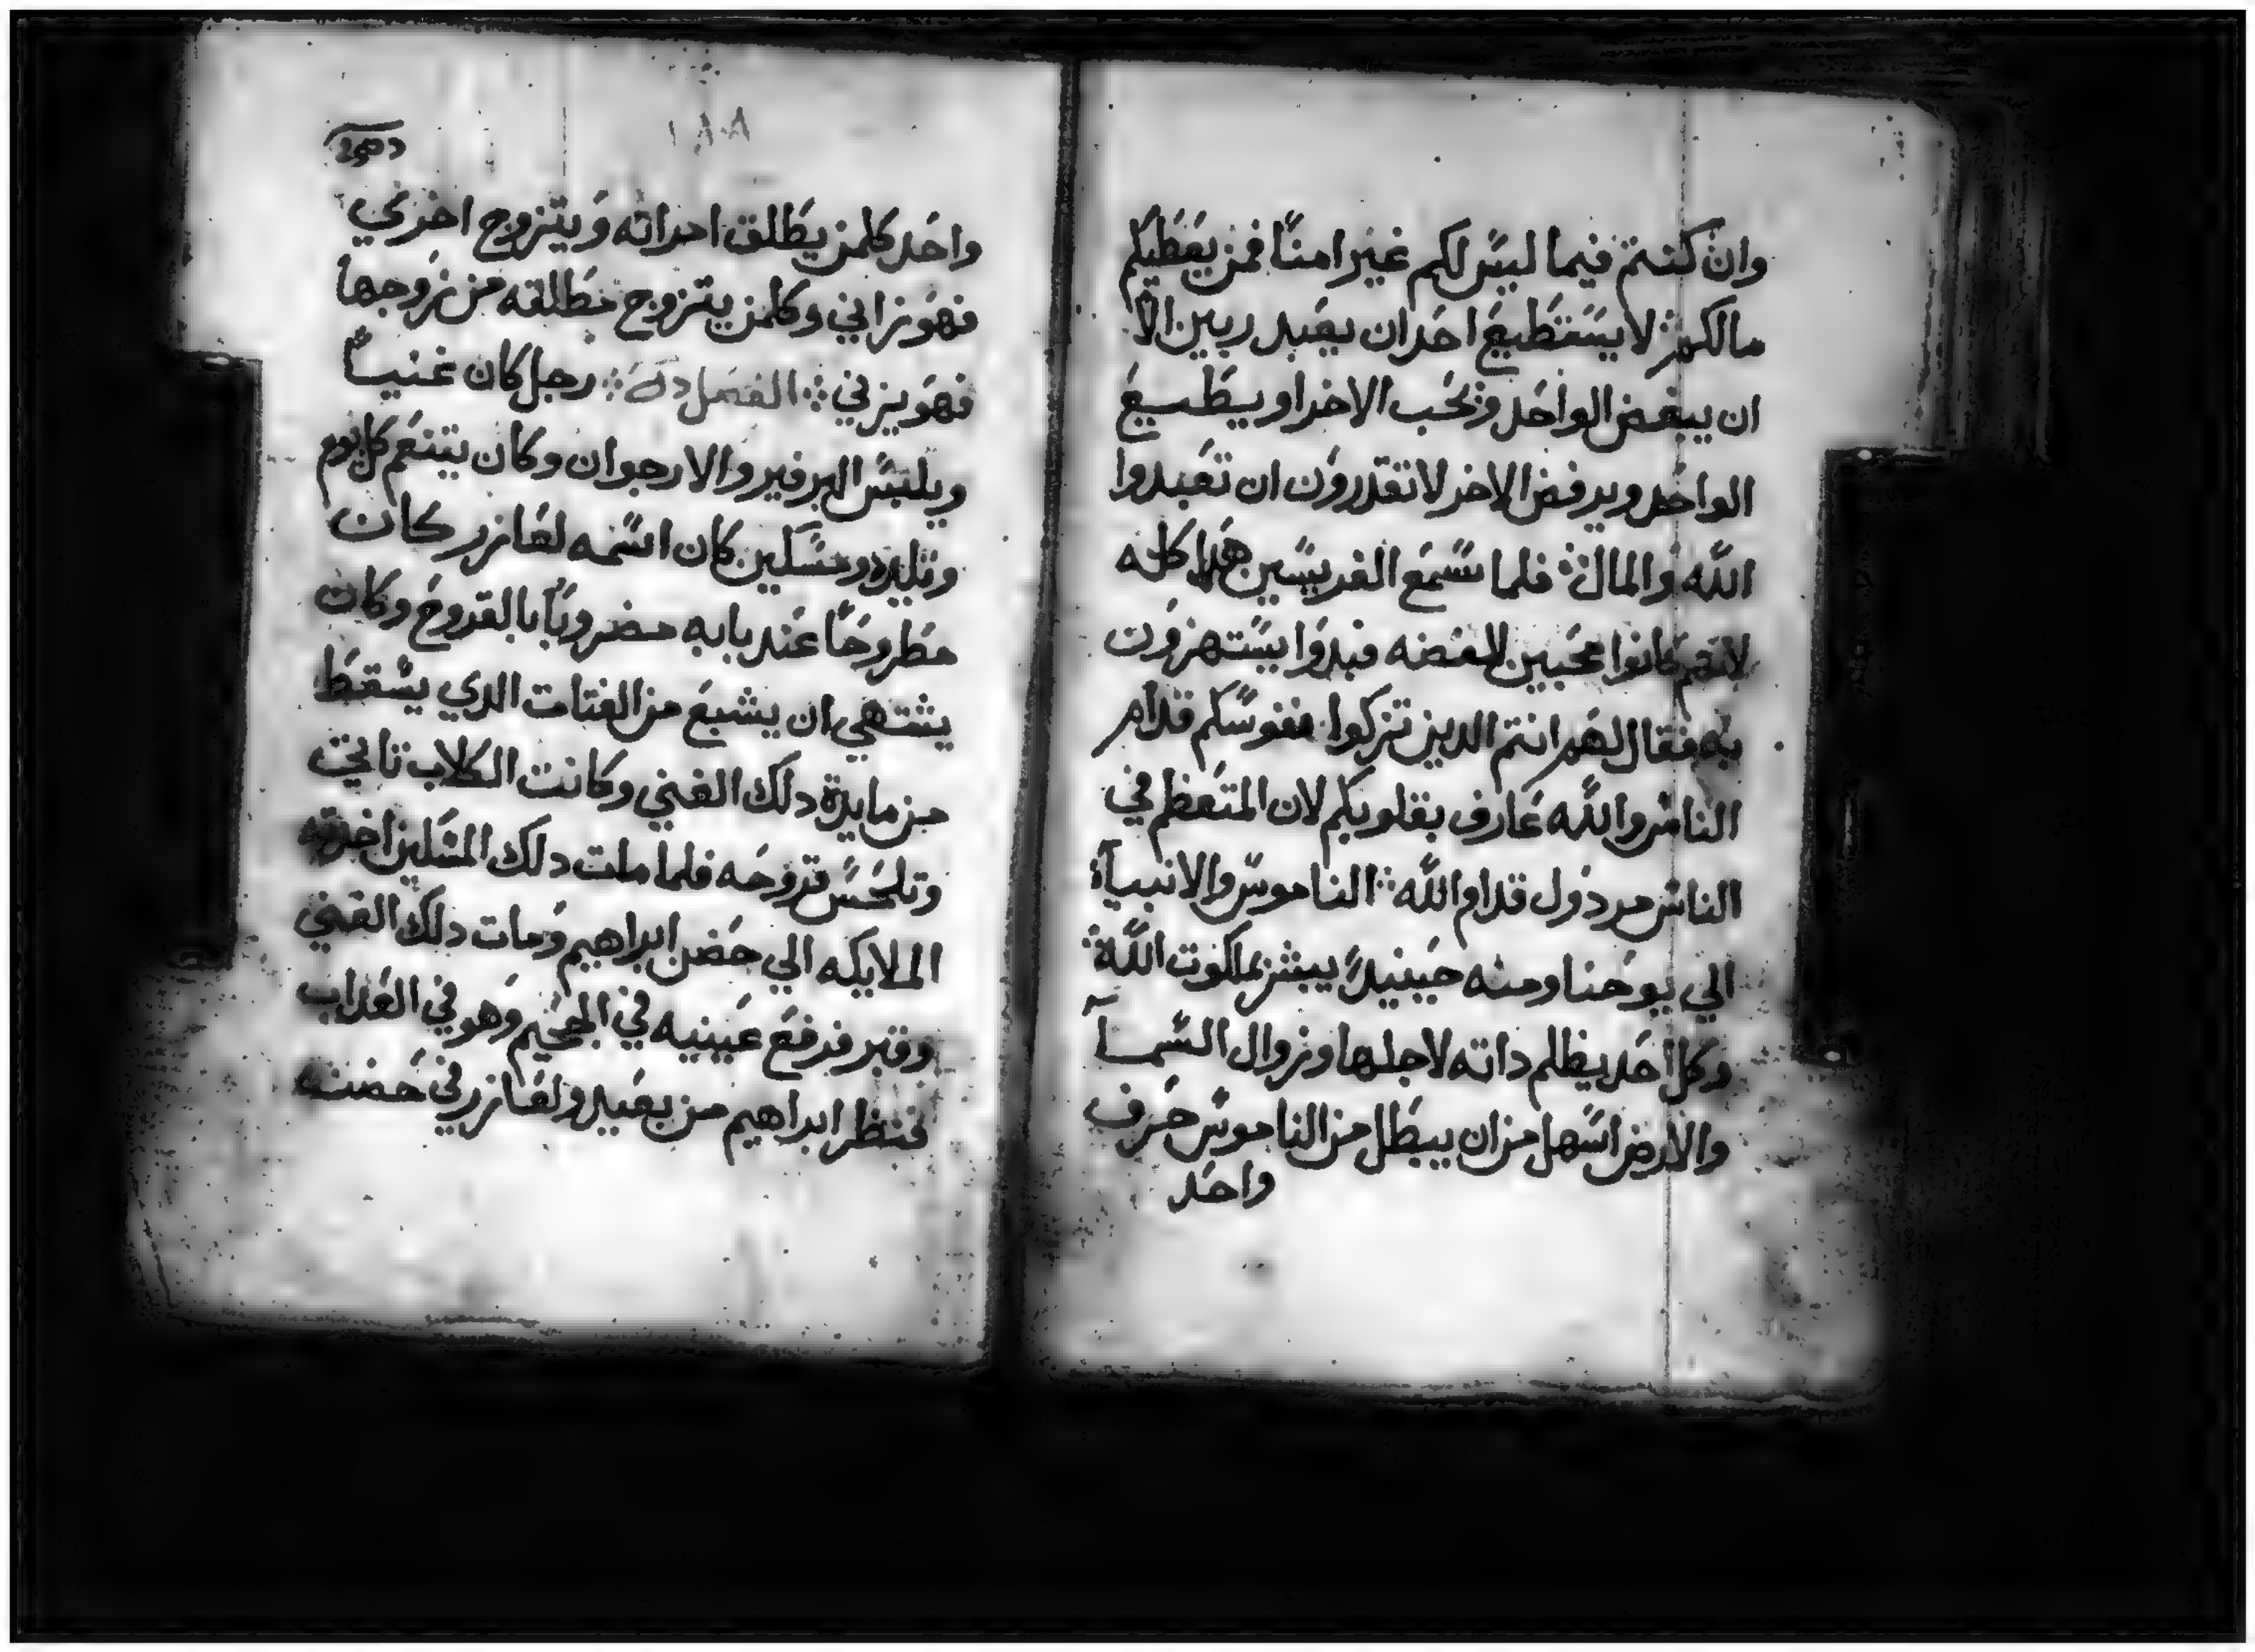 وان كنتم فيما ليس لكم غير امنا فمن يعطيكم
مالكم لا يستطيع احد ان يعبد ربين الا
ان يبغض الواحد ويحب الاخر او يطيع
الواحد ويرفض الاخر لا تقدرون ان تعبدوا
الله والمال فلما سمع الفريسين هدا كله
لانهم كانوا محبين للفضه فبدوا يستهزون
به فقال لهم انتم الدين تزكوا نفوسكم قدام
الناس والله عارف بقلوبكم لان المتعظم في
الناس مردول قدام الله الناموس والانبيآ
الي يوحنا ومنه حينيدً يبشر بملكوت الله
وكل احد يظلم داته لاجلها وزوال السمآ
والارض اسهل من ان يبطل من الناموس حرف
واحد
١٨٨
واحد كلمن يطلق امراته ويتزوج اخري
فهو زاني وكلمن يتزوج مطلقه من زوجها
فهو يزني الفصل رجل كان غنيا
ويلبس البرفير والارجوان وكان يتنعم كل يوم
مسكين كان اسمه لعازر كان
مطروحًا عند بابه مضروبًا بالقروح وكان
يشتهي ان يشبع من الفتات الدي يسقط
من مايدة دلك الغني وكانت الكلاب تاتي
وتلحس قروحه فلما مات دلك المسكين اخدته
الملايكه الي حضن ابراهيم ومات دلك الغني
وقبر فرفع عينيه في الجحيم وهو في العداب
فنظر ابراهيم من بعيد ولعازر في حضنه